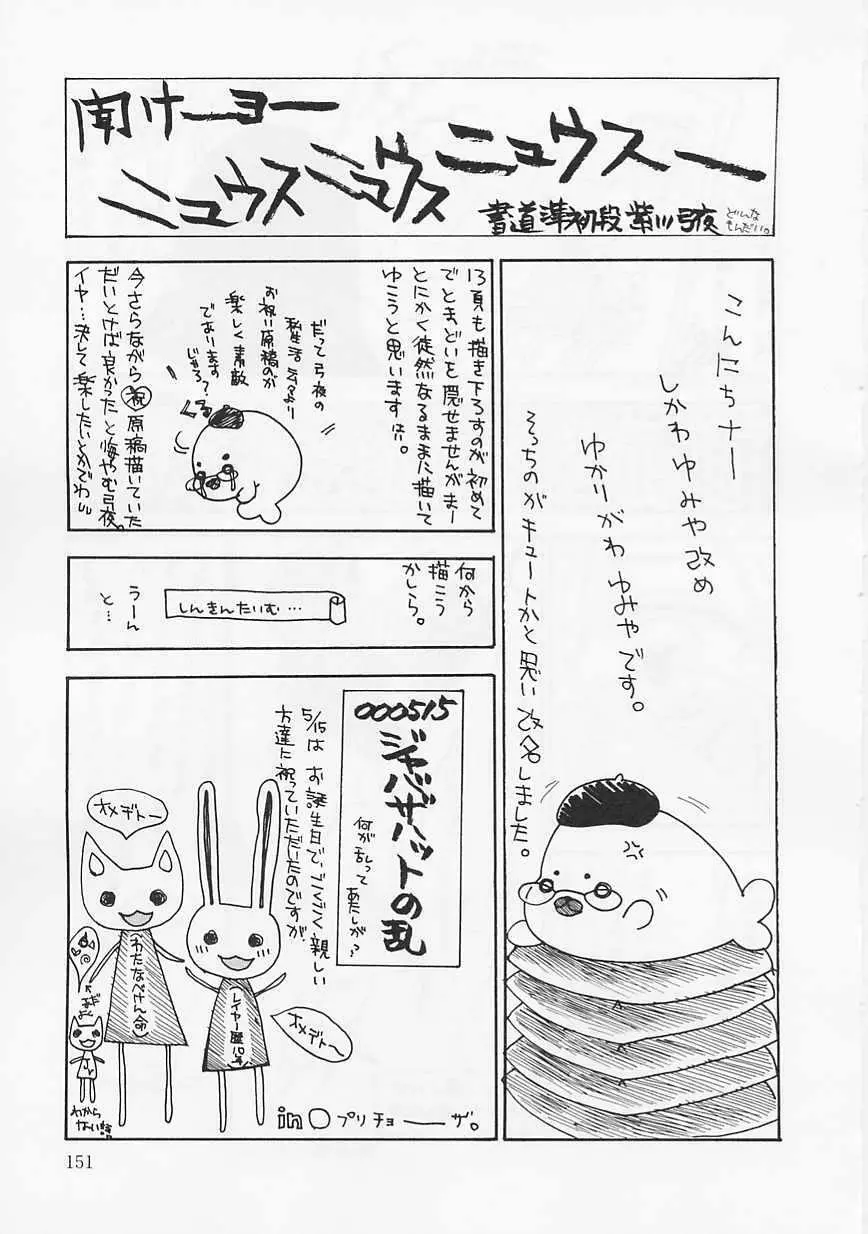 聞けーヨー
ニュウスニュウスニュウスー
書道準初段 紫川弓夜
どんな
もんだい。
こんにちナー
しかわゆみや改め
ゆかりがわ ゆみやです。
そっちのがキュートかと思い改名しました。
13頁も描き下ろすのが初めて
でとまどいを隠せませんがまー
とにかく徒然なるままに描いて
ゆこうと思います!!!。
だって弓夜の
私生活
より
お祝い原稿のが
楽しく素敵
であります
じゃろ?
今さらながら㊗原稿描いていた
だいとけば良かったと悔やむ弓夜。
イヤ…決して楽したいとかでわ!!
何から
描こう
かしら。
しんきんたいむ…
うーん
と…
000515
ジャバザハットの乱
何が乱って
あたしが?
5/15はお誕生日で、ごくごく親しい
方達に祝っていただいたのですが、
オメデトー
わたなべけん命
レイヤー歴10年
オメデトー
わから
ない話!!
in○プリチョーーザ。
151